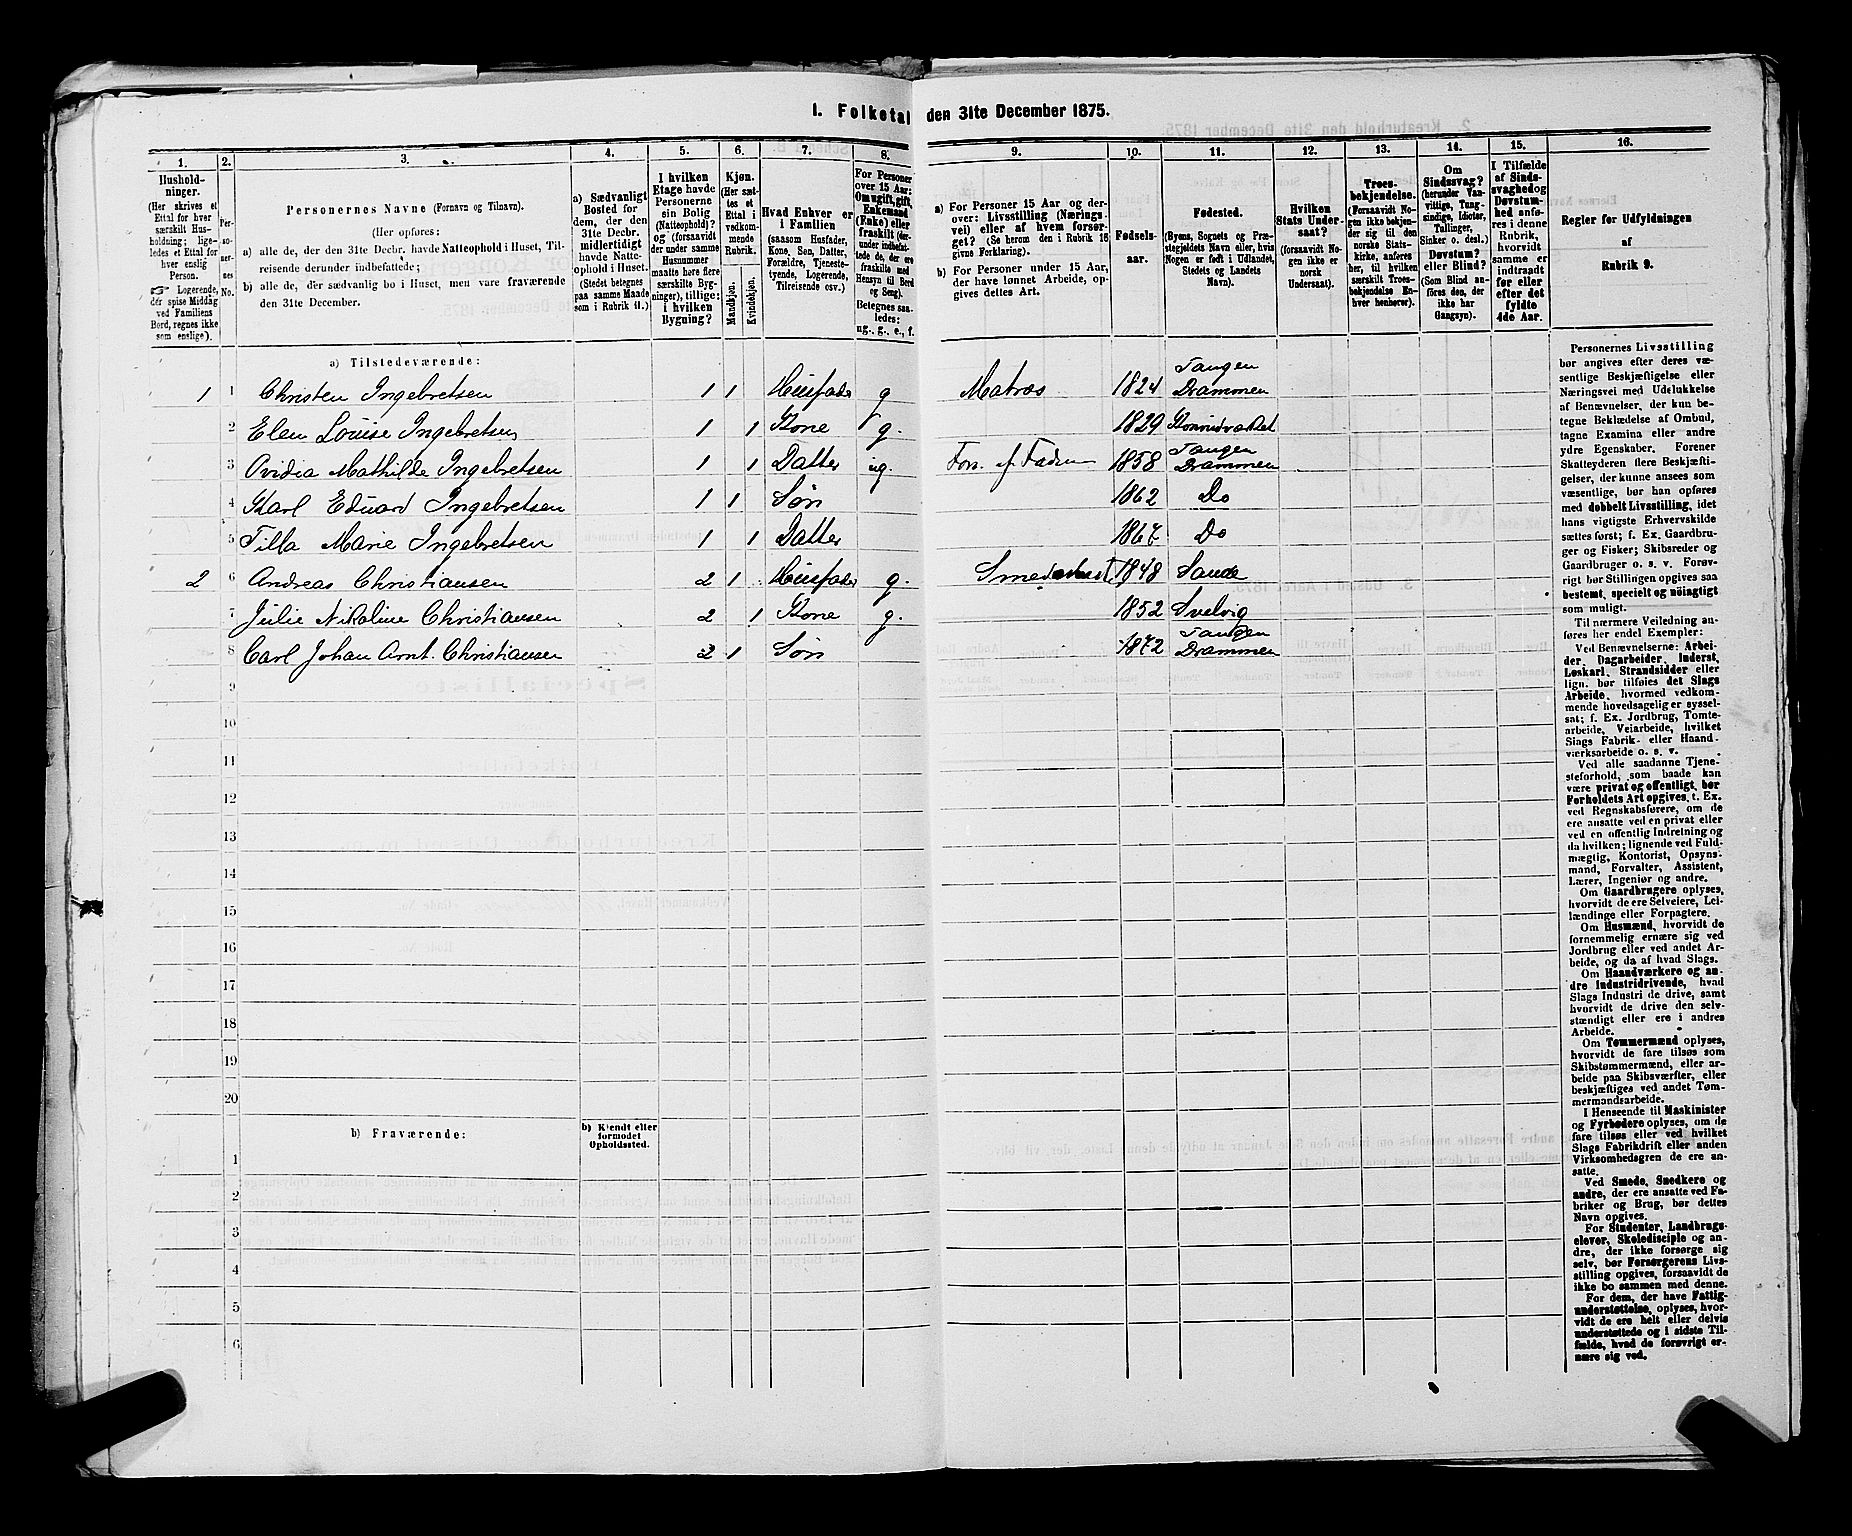 1. Folketal den 31te December 1875.
1.
Hushold-
ninger.
(Her skrives et
Ettal for hver
særskilt Hus-
holdning; lige-
ledes et Ettal for
hver enslig
Person.
☞ Logerende,
der spise Middag
ved Familiens
Bord, regnes ikke
som enslige).
2.
Per-
so-
ner-
nes
No.
3.
Personernes Navne (Fornavn og Tilnavn).
(Her opføres:
a) alle de, der den 31te Decbr. havde Natteophold i Huset, Til-
reisende derunder indbefattede;
b) alle de, der sædvanlig bo i Huset, men vare fraværende
den 31te December.
4.
a) Sædvanligt
Bosted for
dem, der den
31te Decbr.
midlertidigt
havde Natte-
ophold i Huset.
(Stedet betegnes
paa samme Maade
som i Rubrik 11.)
5.
I hvilken
Etage havde
Personerne
sin Bolig
(Natteophold)?
og (forsaavidt
der under samme
Husnummer
maatte høre flere
særskilte Byg-
ninger), tillige:
i hvilken
Bygning?
6.
Kjøn.
(Her sæt-
tes et
Ettal i
vedkom-
mende
Rubrik.
Mandkjøn.
Kvindekjøn.
7.
Hvad Enhver er
i Familien
(saasom Husfader,
Kone, Søn, Datter,
Forældre, Tjeneste-
tyende, Logerende,
Tilreisende osv.)
8.
For Personer
over 15 Aar:
Om ugift, gift,
Enkemand
(Enke) eller
fraskilt (der-
under indbefat-
tede de, der ere
fraskilte med
Hensyn til Bord
og Seng).
Betegnes saa-
ledes:
ug., g., e., f.
9.
a) For Personer 15 Aar og der-
over: Livsstilling (Nærings-
vei) eller af hvem forsør-
get? (Se herom den i Rubrik 16
givne Forklaring).
b) For Personer under 15 Aar,
der have lønnet Arbeide, op-
gives dettes Art.
10.
Fødsels-
aar.
11.
Fødested.
(Byens, Sognets og Præ-
stegjeldets Navn eller, hvis
Nogen er født i Udlandet,
Stedets og Landets
Navn).
12.
Hvilken
Stats Under-
saat?
(forsaavidt No-
gen ikke er
norsk
Undersaat).
13.
Troes-
bekjendelse.
(Forsaavidt No-
gen ikke bekjen-
der sig til den
norske Stats-
kirke, anføres
her, til hvilken
særskilt Troes-
bekjendelse En-
hver henhører).
14.
Om
Sindssvag?
(herunder Van-
vittige, Tung-
sindige, Idioter,
Tallinger,
Sinker o. desl.)
Døvstum?
eller Blind?
(Som Blind an-
føres den, der
ikke har
Gangsyn).
15.
I Tilfælde
af Sinds-
svaghed og
Døvstum-
hed anfø-
res i denne
Rubrik,
hvorvidt
samme er
indtraadt
før eller
efter det
fyldte
4de Aar.
16.
Regler for Udfyldningen
af
Rubrik 9.
a) Tilstedeværende:
1 1 Christen Ingebretsen 1 1 Husfader g Matros 1824 Tangen Drammen
2 Elen Louise Ingebretsen 1 1 Kone g. 1829
3 Ovidia Mathilde Ingebretsen 1 1 Datter ug. Fors. af Faderen 1858 Tangen Drammen
4 Karl Eduard Ingebretsen 1 1 Søn 1862 Do
5 Tilla Marie Ingebretsen 1 1 Datter 1867 Do
2 6 Andreas Christiansen 2 1 Husfader g. 1848 Sande
7 Julie Nikoline Christiansen 2 1 Kone g. 1852 Svelvig
8 Carl Johan Arnt. Christiansen 2 1 Søn 1872 Tangen Drammen
9
10
11
12
13
14
15
16
17
18
19
20
b) Fraværende:
b) Kjendt eller
formodet
Opholdssted.
1
2
3
4
5
6
Personernes Livsstilling
bør angives efter deres væ-
sentlige Beskjæftigelse eller
Næringsvei med Udelukkelse
af Benævnelser, der kun be-
tegne Beklædelse af Ombud,
tagne Examina eller andre
ydre Egenskaber. Forener
Skatteyderen flere Beskjæfti-
gelser, der kunne ansees som
væsentlige, bør han opføres
med dobbelt Livsstilling, idet
hans vigtigste Erhvervskilde
sættes først; f. Ex. Gaardbru-
ger og Fisker; Skibsreder og
Gaardbruger o. s. v. Forøv-
rigt bør Stillingen opgives saa
bestemt, specielt og nöiagtigt
som muligt.
Til nærmere Veiledning an-
føres her endel Exempler:
Ved Benævnelserne: Arbei-
der, Dagarbeider, Inderst,
Løskarl, Strandsidder eller
lign. bør tilføies det Slags
Arbeide, hvormed vedkom-
mende hovedsagelig er syssel-
sat; f. Ex. Jordbrug, Tomte-
arbeide, Veiarbeide, hvilket
Slags Fabrik- eller Haand-
værksarbeide o. s. v.
Ved alle saadanne Tjene-
steforhold, som baade kan
være privat og offentligt, bør
Forholdets Art opgives, t. Ex.
ved Regnskabsførere, om de
ere ansatte ved en privat eller
ved en offentlig Indretning og
da hvilken; lignende ved Fuld-
mægtig, Kontorist, Opsyns-
mand, Forvalter, Assistent,
Lærer, Ingeniør og andre.
Om Gaardbrugere oplyses,
hvorvidt de ere Selveiere, Lei-
lændinge eller Forpagtere.
Om Husmænd, hvorvidt de
fornemmelig ernære sig ved
Jordbrug eller ved andet Ar-
beide, og da af hvad Slags.
Om Haandværkere og an-
dre Industridrivende, hvad
Slags Industri de drive, samt
hvorvidt de drive den selv-
stændigt eller ere i andres
Arbeide.
Om Tømmermænd oplyses,
hvorvidt de fare tilsøs som
Skibstømmermænd, eller ar-
beide paa Skibsværfter, eller
beskjæftiges ved andet Tøm-
mermandsarbeide.
I Henseende til Maskinister
og Fyrbødere oplyses, om de
fare tilsøs eller ved hvilket
Slags Fabrikdrift eller anden
Virksomhedsgren de ere an-
satte.
Ved Smede, Snedkere og
andre, der ere ansatte ved Fa-
briker og Brug, bør dettes
Navn opgives.
For Studenter, Landbrugs-
elever, Skoledisciple og an-
dre, der ikke forsørge sig
selv, bør Forsørgerens Livs-
stilling opgives, forsaavidt de
ikke bo sammen med denne.
For dem, der have Fattig-
understøttelse, oplyses, hvor-
vidt de ere helt eller delvis
understøttede og i sidste Til-
fælde, hvad de forøvrigt er-
nære sig ved.